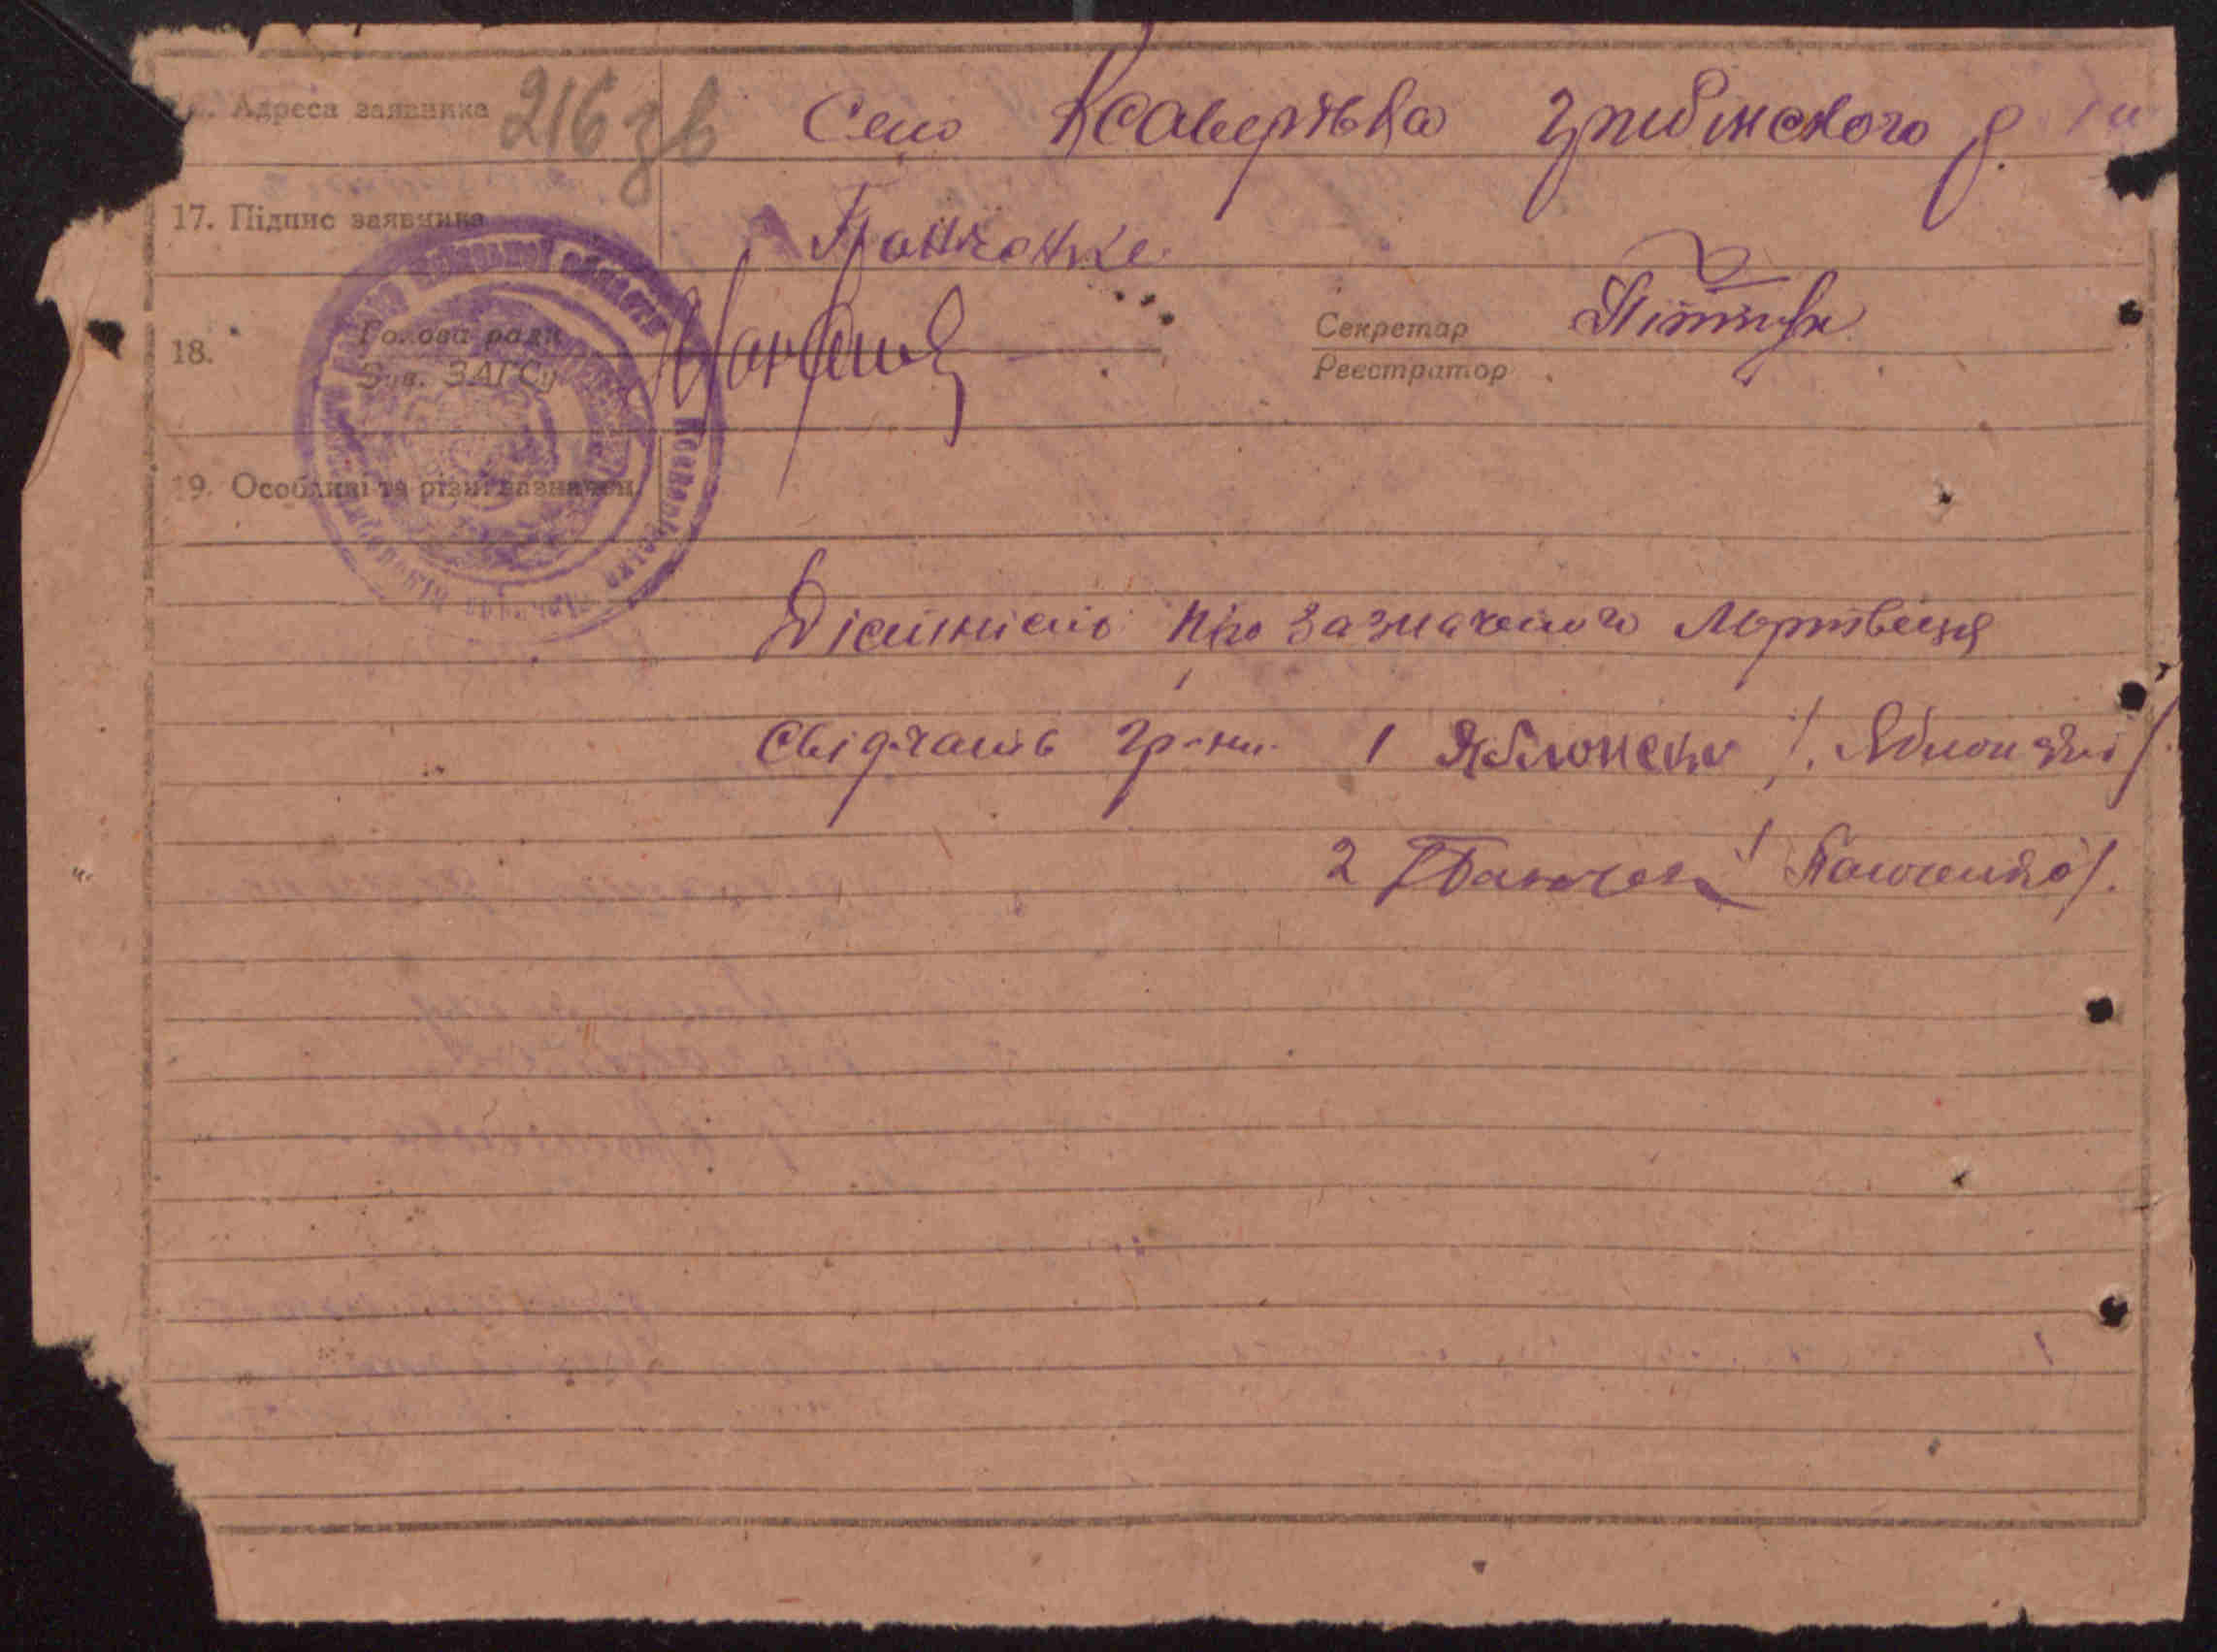 Адреса заявника 216 зв Село Ксаверівка Гребінського р.
17. Підпис заявника Панченко
18. Голова ради
Зав. ЗАГСу
Секретар
Реєстратор
19. Особливі та різні зазначен.
Дісйність про зазначеного Мертвеця
Свідчать гр-ни 1 Яблонськ /. Яблонські /
2 Панчен / Панченко /.